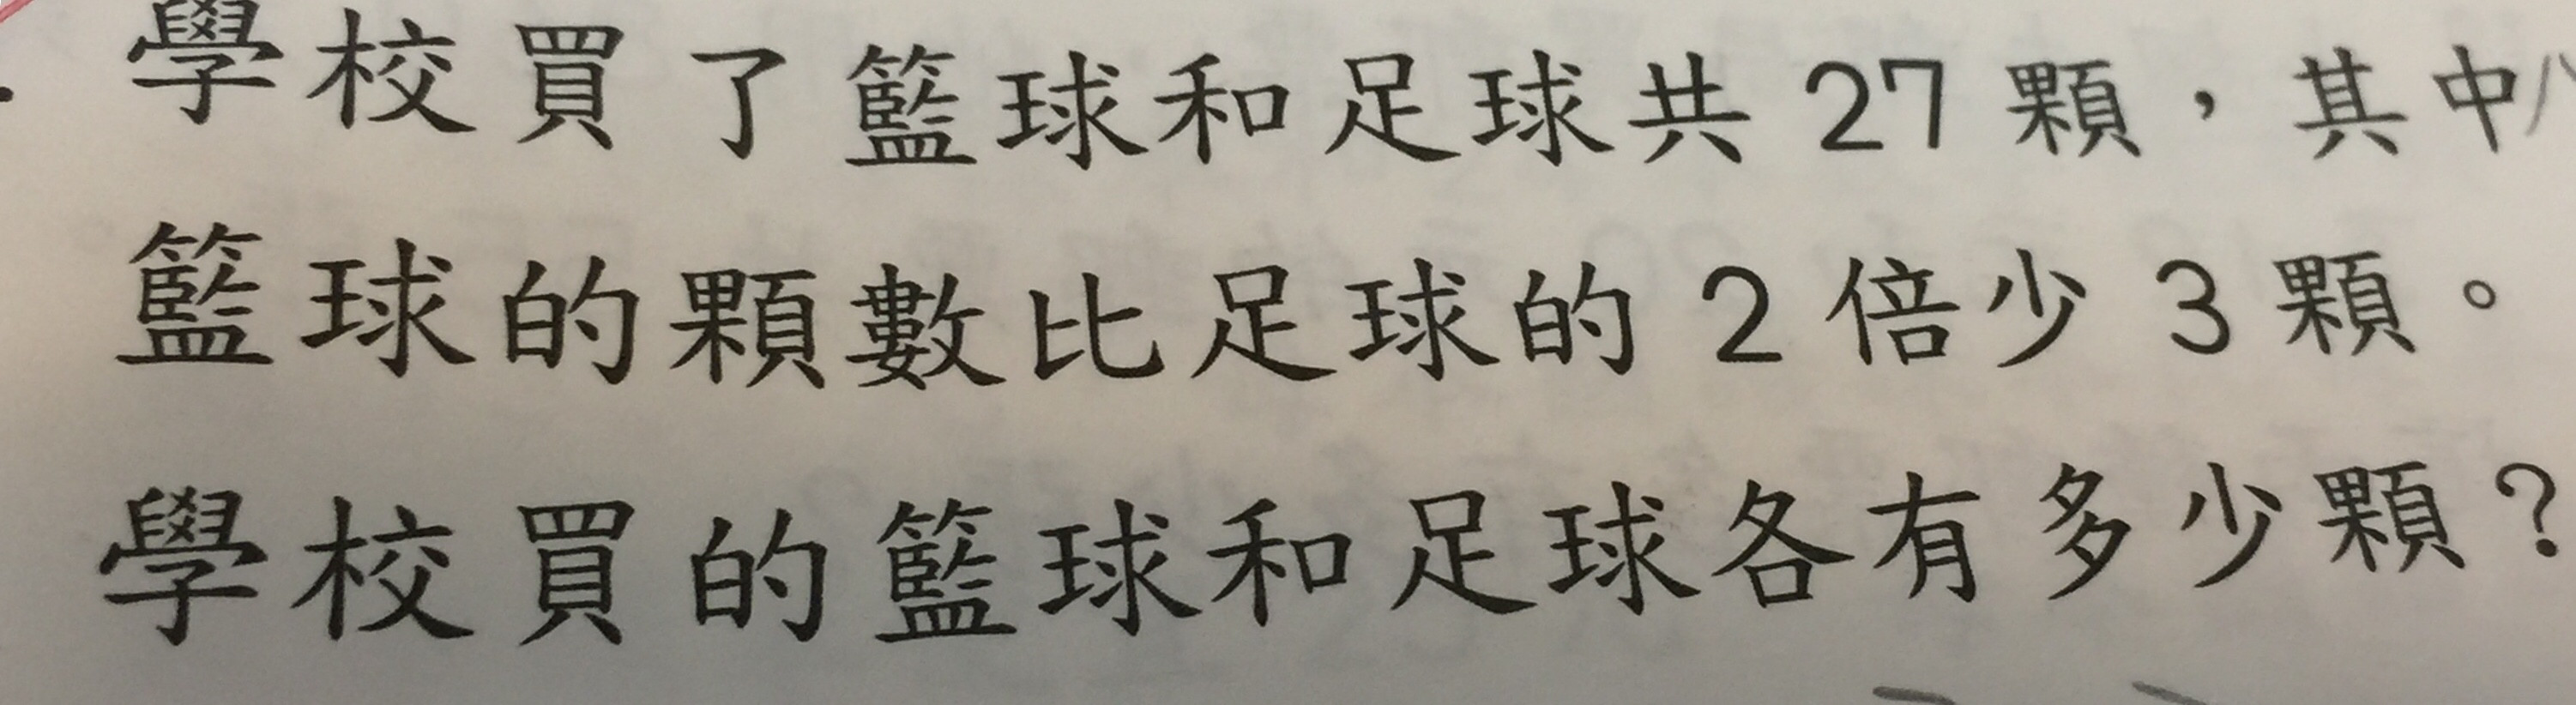 學校買了籃球和足球共 27 顆，其中
籃球的顆數比足球的 2 倍少 3 顆。
學校買的籃球和足球各有多少顆？